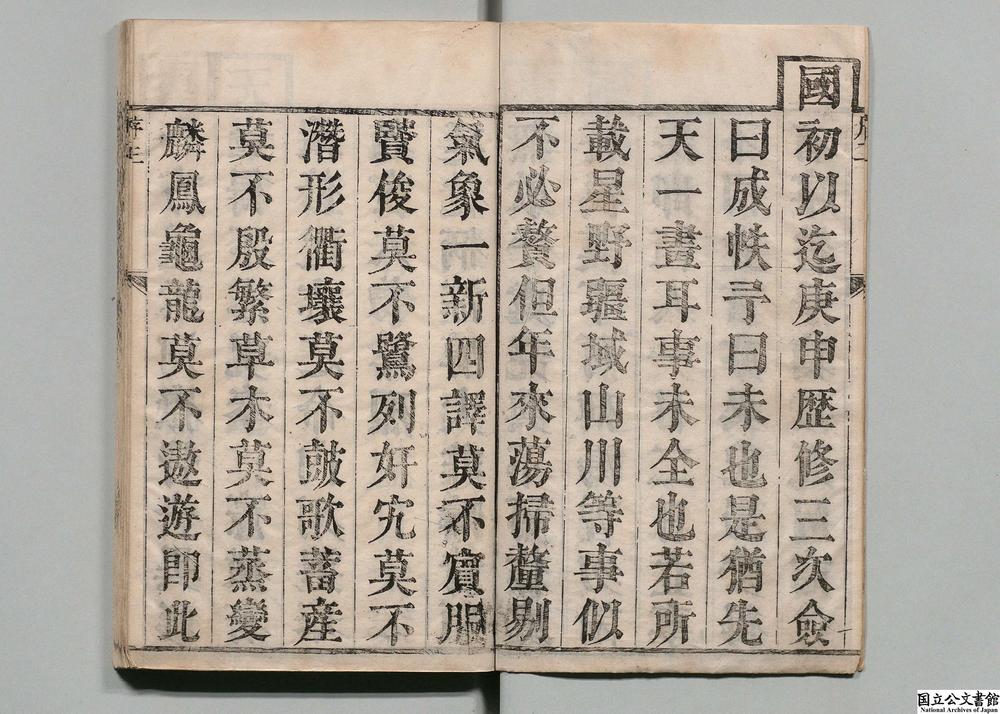 國初以迄庚申歷修三次僉
曰成帙予曰未也是猶先
天一畫耳事未全也若所
載星野疆域山川等事似
不必贅但年來蕩掃釐剔
氣象一新四譯莫不賓服
賢俊莫不鷺列奸宄莫不
潛形衢壤莫不皷歌蓄産
莫不殷繁草木莫不蒸變
麟鳳龜龍莫不遨遊即此
国立公文書館
National Archives of Japan